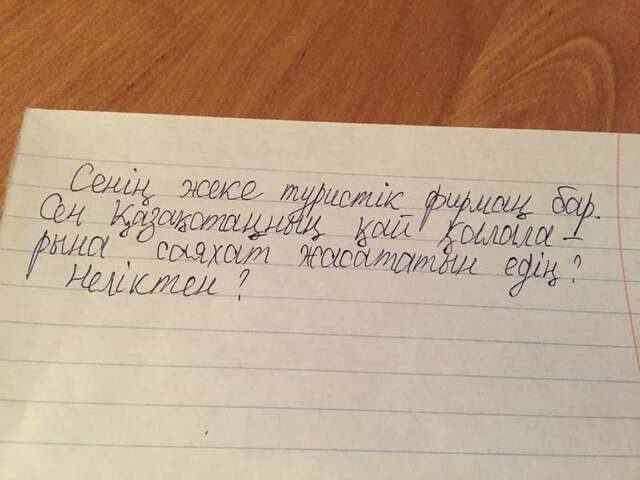 Сенің жеке туристік фирмаң бар.
Сен Қазақстанның қай қалала-
рына саяхат жасататын едің?
Неліктен?